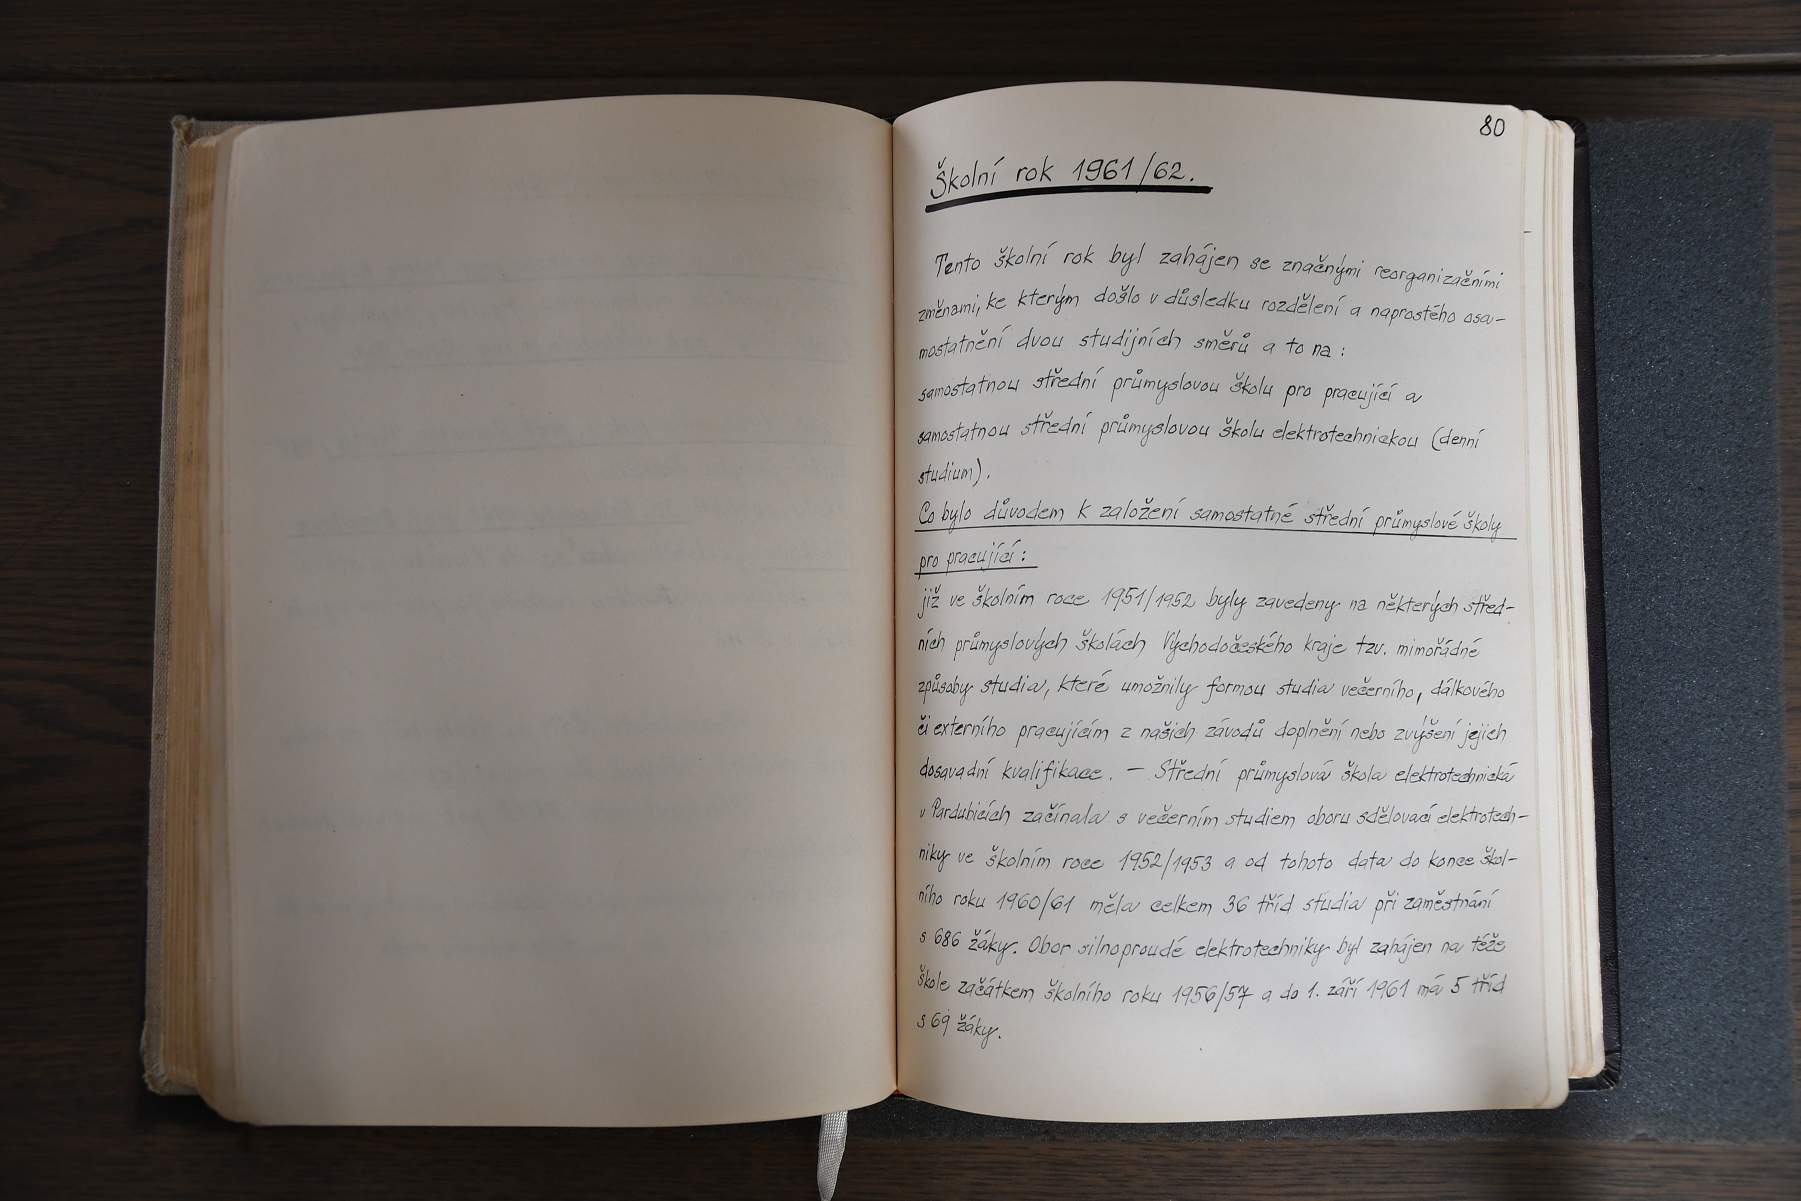 80
Školní rok 1961/62.
Tento školní rok byl zahájen se značnými reorganizačními
změnami, ke kterým došlo v důsledku rozdělení a naprostého osa-
mostatnění dvou studijních směrů a to na :
samostatnou střední průmyslovou školu pro pracující a
samostatnou střední průmyslovou školu elektrotechnickou (denní
studium).
Co bylo důvodem k založení samostatné střední průmyslové školy
pro pracující :
již ve školním roce 1951/1952 byly zavedeny na některých střed-
ních průmyslových školách Východočeského kraje tzv. mimořádné
způsoby studia, které umožnily formou studia večerního, dálkového
či externího pracujícím z našich závodů doplnění nebo zvýšení jejich
dosavadní kvalifikace. – Střední průmyslová škola elektrotechnická
v Pardubicích začínala s večerním studiem oboru sdělovací elektrotech-
niky ve školním roce 1952/1953 a od tohoto data do konce škol-
ního roku 1960/61 měla celkem 36 tříd studia při zaměstnání
s 686 žáky. Obor silnoproudé elektrotechniky byl zahájen na téže
škole začátkem školního roku 1956/57 a do 1. září 1961 má 5 tříd
s 69 žáky.